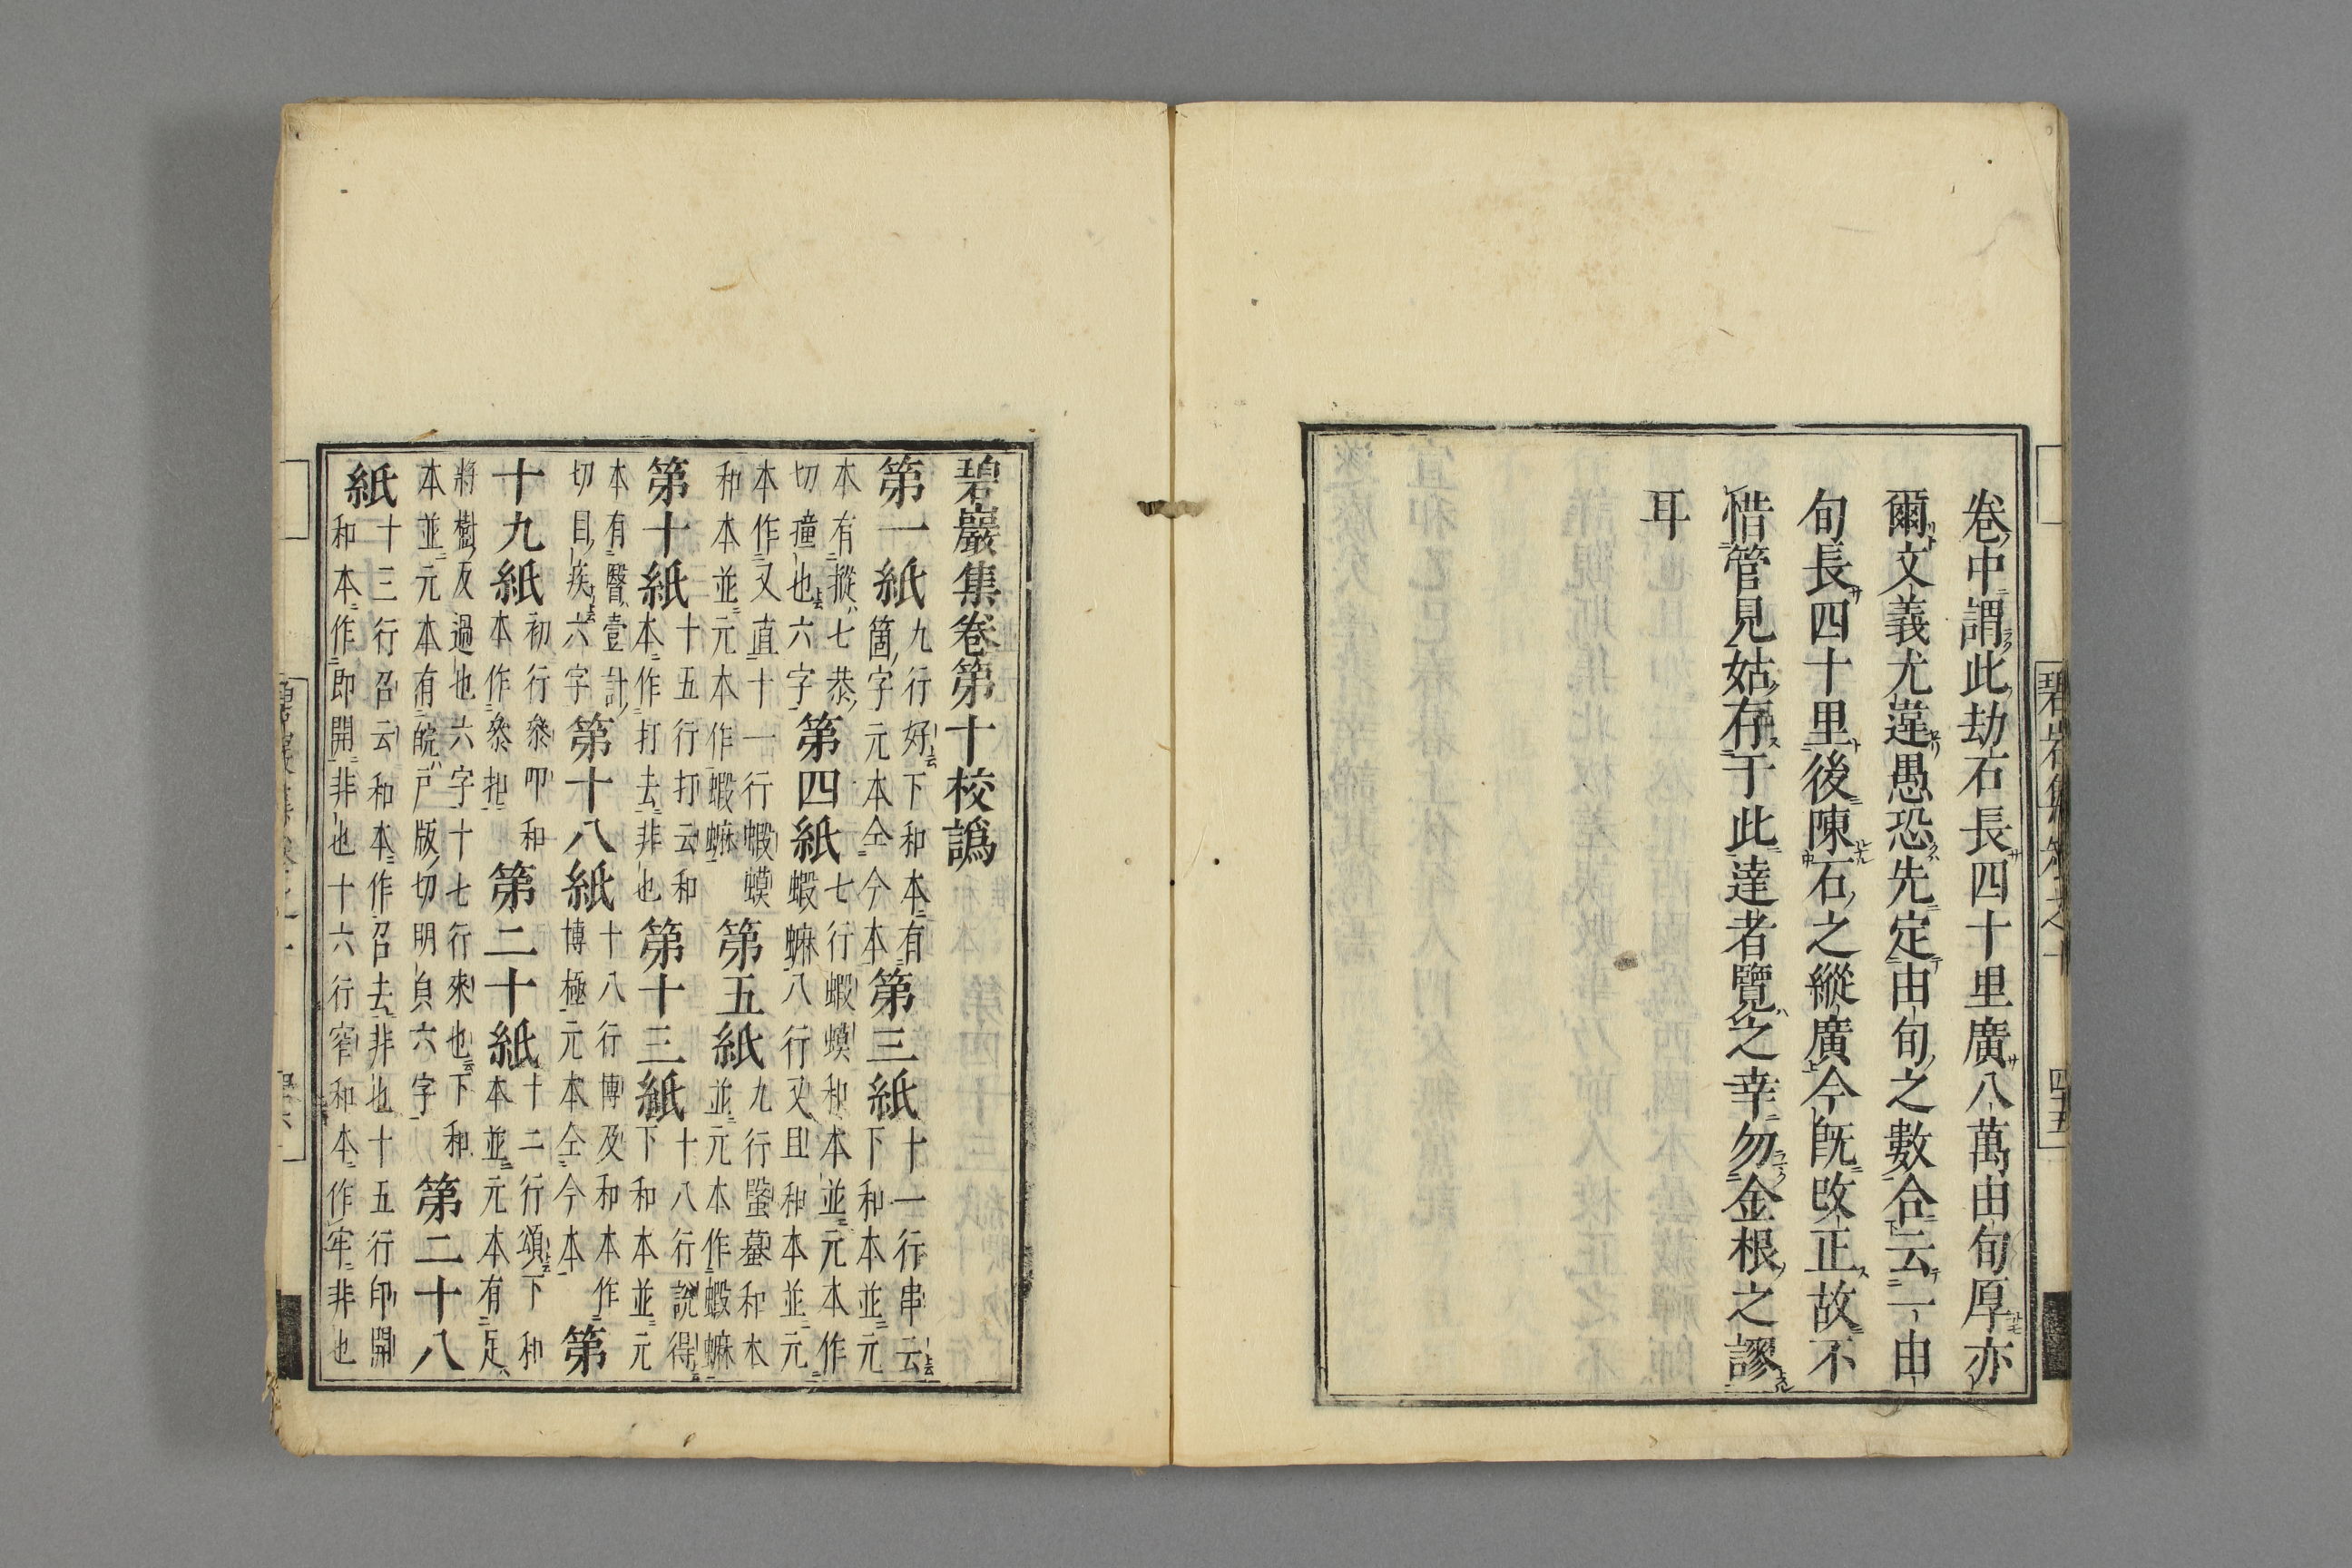 卷中謂此劫石長四十里廣八萬由旬厚亦
爾文義尤違愚恐先定由旬之數合云一由
旬長四十里後陳石之縱廣今既改正故不
惜管見姑存于此達者覽之幸勿金根之謬
耳
碧巖集卷第十校譌
第一紙
九行好下和本有
箇字元本仝今本
第三紙
十一行串云
下和本並元
本有摐七恭
切撞也六字
第四紙
七行蝦蟆和本並元本作
蝦蟇八行又且和本並元
本作又直十一行蝦蟆
和本並元本作蝦蟇
第五紙
九行
並元本作蝦蟇
本有醫壹計
切目疾六字
第十紙
十五行打云和
本作打去非也
第十三紙
十八行說得
下和本並元
第十八紙
十八行博及和本作
博極元本仝今本
第
十九紙
初行叅叩和
本作叅扣
第二十紙
十二行頌下和
本並元本有辵
將樹反過也六字十七行來也下和
本並元本有皖戶版切明皃六字
第二十八
紙
十三行召云和本作召去非也十五行印開
和本作即開非也十六行窄和本作牢非也